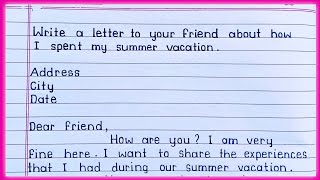 Write a letter to your friend about how
I spent my summer vacation.
Address
City
Date
Dear friend,
How are you? I am very
fine here. I want to share the experiences
that I had during our summer vacation.